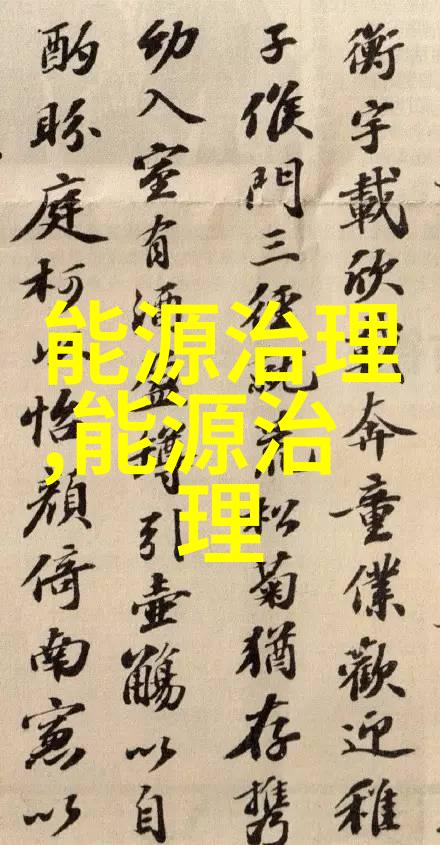 衡宇載欣載奔童僕歡迎稚
子候門三徑就荒松菊猶存携
幼入室有酒盈樽引壺觴以自
酌眄庭柯以怡顏倚南窓以
能源治理
,能源治
理